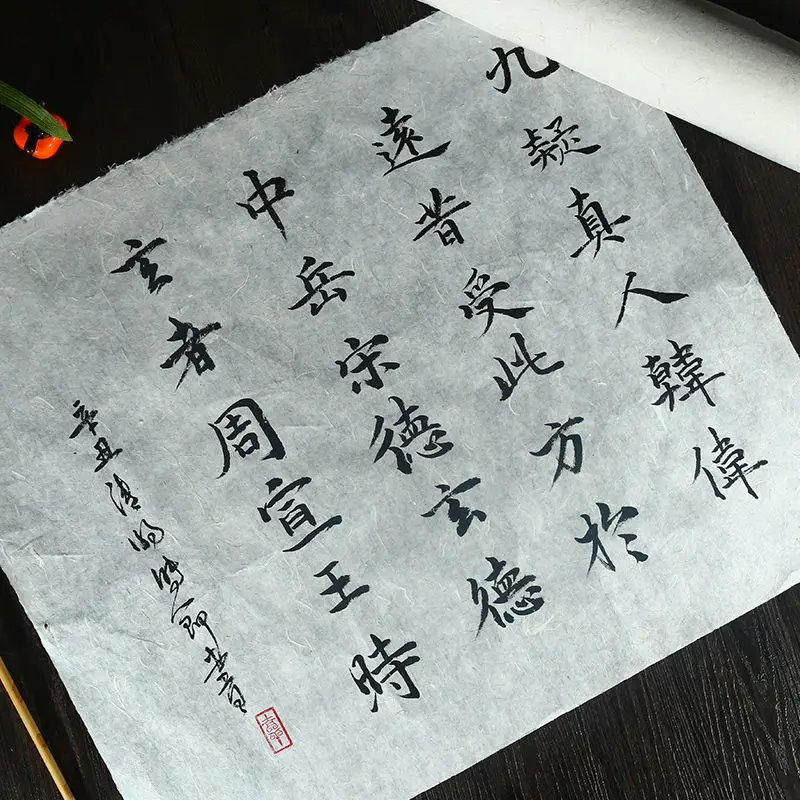 九疑真人韓偉
遠昔受此方於
中岳宋德玄德
玄者周宣王時
辛丑清明時節書